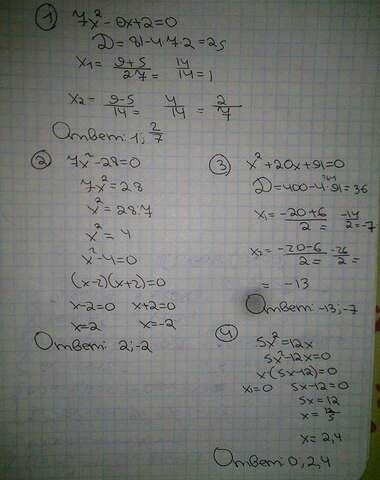 ① 7x²-9x+2=0
D=81-4·7·2=25
x₁= 9+5/2·7 = 14/14=1
x₂= 9-5/14 = 4/14 = 2/7
Ответ: 1; 2/7
② 7x²-28=0
7x²=28
x²=28:7
x²=4
x²-4=0
(x-2)(x+2)=0
x-2=0 x+2=0
x=2 x=-2
Ответ: 2;-2
③ x²+20x+91=0
D=400-4·91=36
x₁= -20+6/2 = -14/2=-7
x₂= -20-6/2 = -26/2 =
= -13
Ответ: -13;-7
④ 5x²=12x
5x²-12x=0
x·(5x-12)=0
x₁=0 5x-12=0
5x=12
x= 12/5
x=2,4
Ответ: 0, 2,4